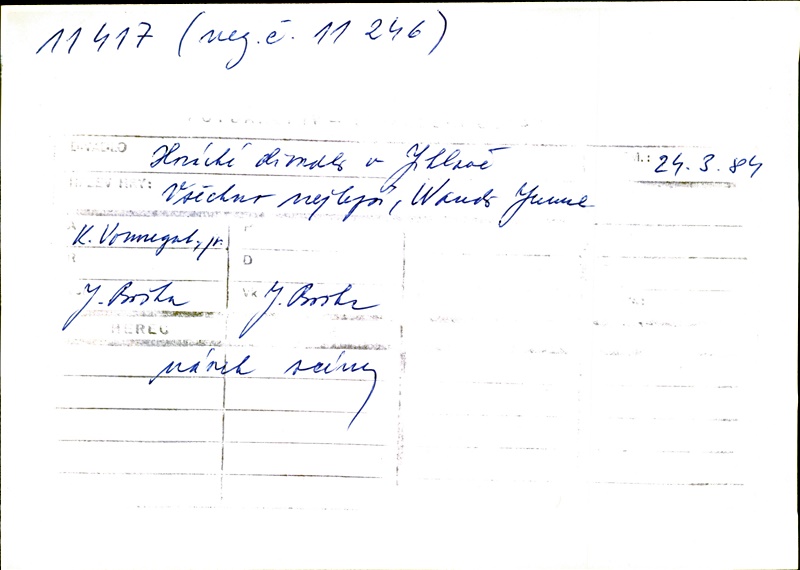 11417 (neg.č. 11 246)
DIVADLO Horácké divadlo v Jihlavě 24.3.84
NÁZEV HRY: Všechno nejlepší, Wando June
K. Vonnegut, jr.
R D
J. Boška J. Boška
HEREC
návrh scény